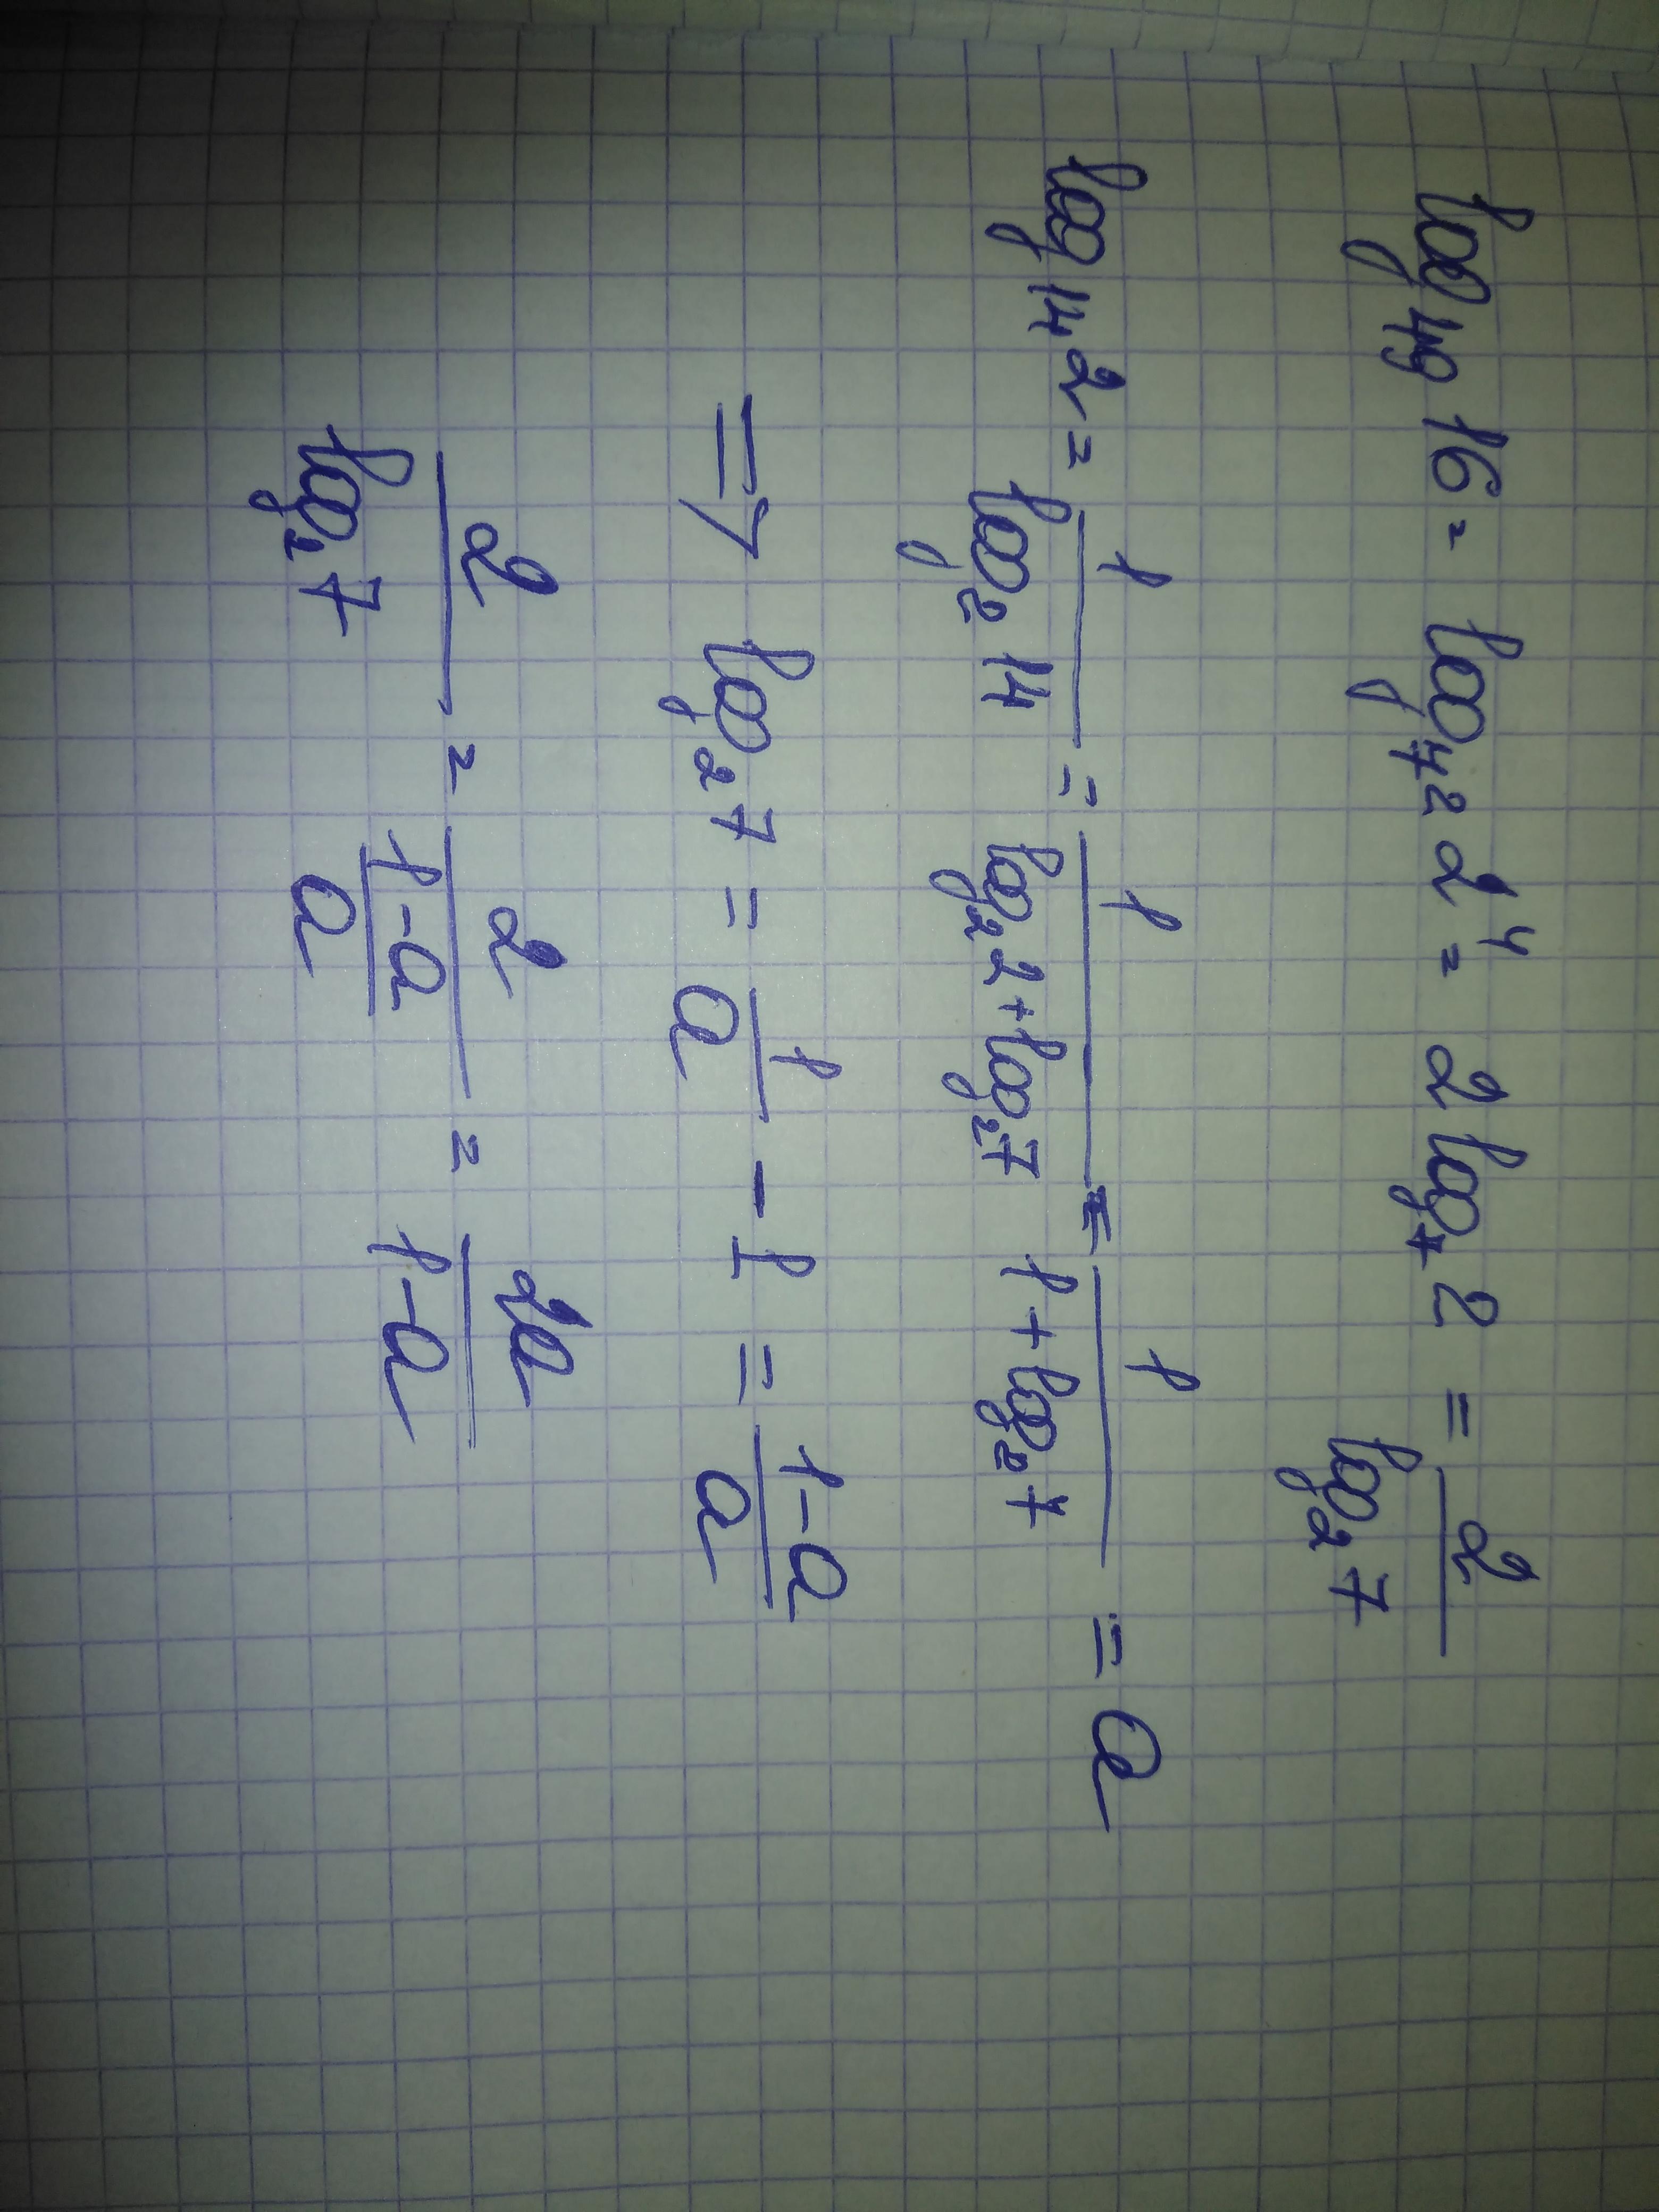 log₄₉ 16 = log₇² 2⁴ = 2 log₇ 2 = 2 / log₂ 7
log₁₄ 2 = 1 / log₂ 14 = 1 / (log₂ 2 + log₂ 7) = 1 / (1 + log₂ 7) = a
=> log₂ 7 = 1/a - 1 = (1-a)/a
2 / log₂ 7 = 2 / ((1-a)/a) = 2a / (1-a)